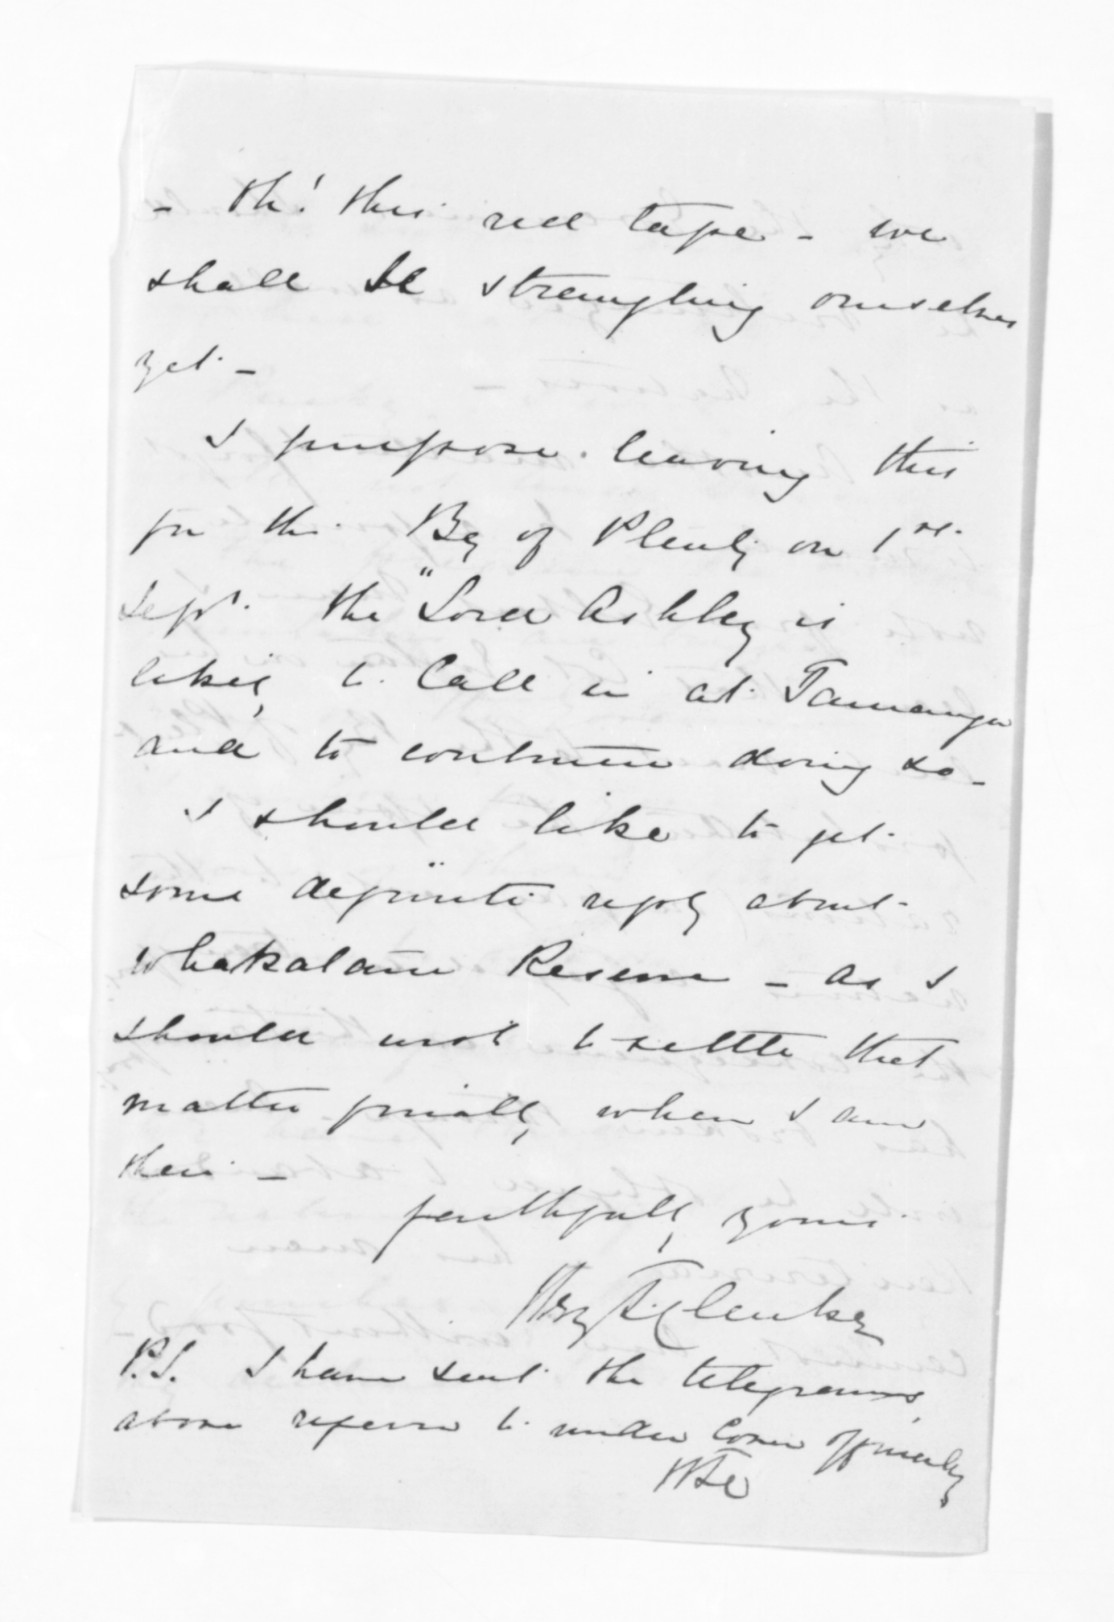 - Oh! this red tape - we
shall be strangling ourselves
yet -
I purpose leaving this
for the Bay of Plenty on 1st
Sept. the "Lord Ashley is
likely to Call in at Tauranga
and to continue doing so -
I should like to get
some definite reply about
Whakatane Reserve - as I
should wish to settle that
matter finally, when I am
there -
faithfully yours
H T Clarke
P.S. I have sent the telegrams
above referred to under Cover officially
HTC